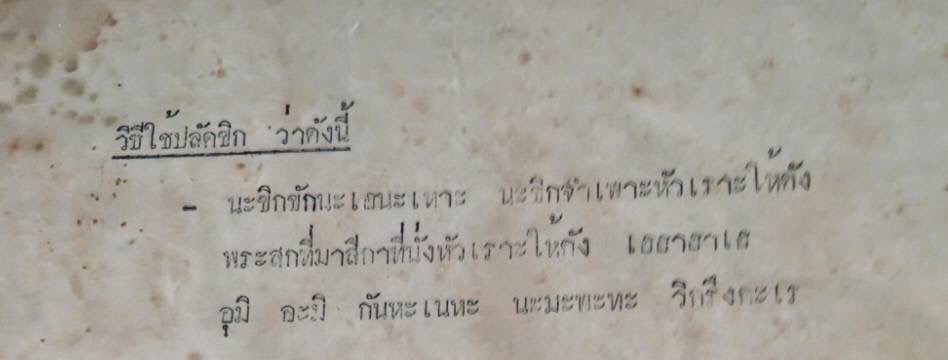 วิธีใช้ปลัดขิก ว่าดังนี้
- นะขิกขักนะเฮนะเหาะ นะขิกจำเพาะหัวเราะให้ดัง
พระสกที่มาสีกาที่นั่งหัวเราะให้ดัง เฮฮาฮาเฮ
อุมิ อะมิ กันหะเนหะ นะมะพะทะ